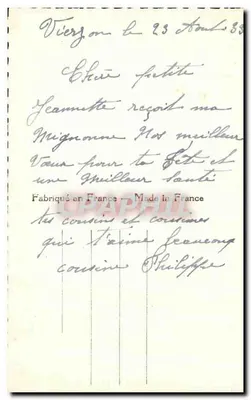 Vierzon le 23 Août 33
Chère petite
Jeannette reçoit ma
Mignonne Nos meilleur
Vœux pour ta Fête et
une meilleur santé
Fabriqué en France — Made in France
tes cousin et cousines
qui t'aime beaucoup
cousine Philippe